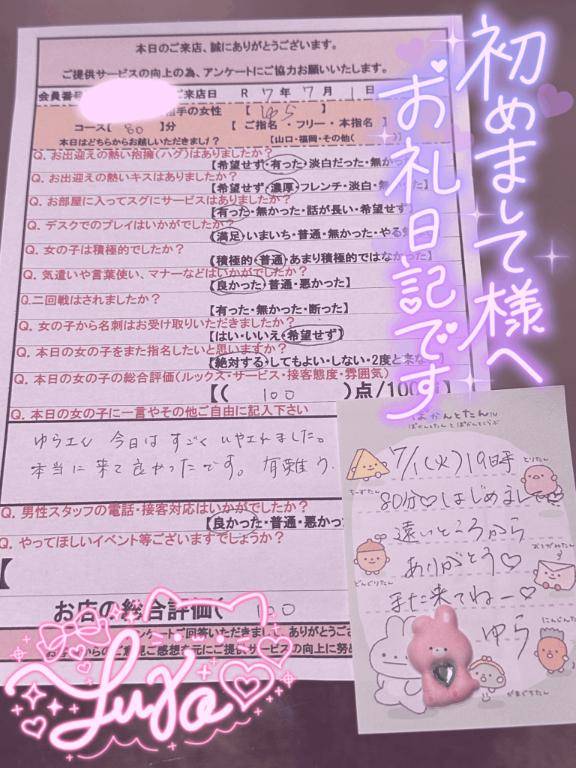 初めまして様へ
お礼日記です
本日のご来店、誠にありがとうございます。
ご提供サービスの向上の為、アンケートにご協力お願いいたします。
会員番号
ご来店日 R 7年 7月 1日
相手の女性 【 ゆら 】
コース【 80 】分 【 ご指名・フリー・本指名 】
本日はどちらからお越しいただきましたか? 【山口・福岡・その他( )】
Q. お出迎えの熱い抱擁(ハグ)はありましたか?
【希望せず・有った・淡白だった・無かっ
Q. お出迎えの熱いキスはありましたか?
【希望せず・濃厚・フレンチ・淡白・無
Q. お部屋に入ってスグにサービスはありましたか?
【有った・無かった・話が長い・希望せず
Q. デスクでのプレイはいかがでしたか?
【満足・いまいち・普通・無かった・やる
Q. 女の子は積極的でしたか?
【積極的・普通・あまり積極的ではなかった】
Q. 気遣いや言葉使い、マナーなどはいかがでしたか?
【良かった・普通・悪かった】
Q.二回戦はされましたか?
【有った・無かった・断った】
Q. 女の子から名刺はお受け取りいただきましたか?
【はい・いいえ・希望せず】
Q. 本日の女の子をまた指名したいと思いますか?
【絶対する・してもよい・しない・2度と来な
Q. 本日の女の子の総合評価(ルックス・サービス・接客態度・雰囲気)
【( 100 )点/100
Q. 本日の女の子に一言やその他ご自由に記入下さい
ゆらさん 今日はすごくいやされました。
本当に来て良かったです。有難う。
Q. 男性スタッフの電話・接客対応はいかがでしたか?
【良かった・普通・悪かっ
Q. やってほしいイベント等ございますでしょうか?
【
お店の総合評価( 100
アンケートにご回答いただきまして、ありがとうござ
お客様からのご意見ご感想を元にご提供サービスの向上に努め
Yura
ぱかんとたん
7/1(火)19時半
80分♡はじめまして
遠いところから
ありがとう♡
また来てねー♡
ゆら
とりたん
ちーずたん
おてがみたん
どんぐりたん
にんじんたん
がまぐちたん